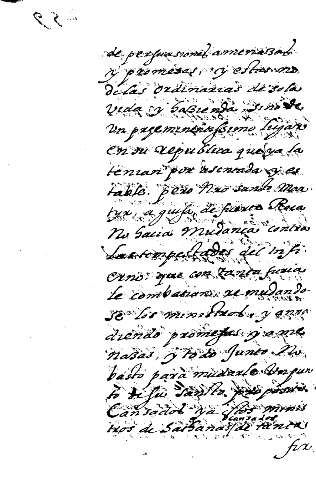 de persuasiones, amenazas
y promesas, y estas no
de las ordinarias de sola
vida y hazienda sino de
un preeminentissimo lugar
en su Republica que ya la
tenian por asentada y es
table. pero nro santo Mar
tyr, a guisa de fuerte Roca
No hacia mudança contra
Las tempestades del Infi
erno: que con tanta furia
le combatian, remudando
se los ministros, y ana
diendo promesas, y ame
nazas, y todo junto No
basto para mudarle Un pun
to de su santo proposito
Cansados ya los minis
tros de Sathanas de tanta
fir